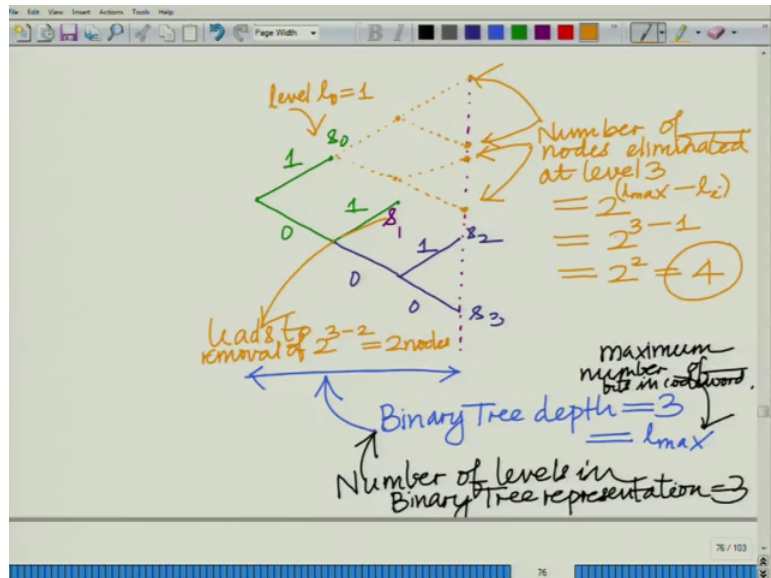 File Edit View Insert Actions Tools Help
Page Width
B I
level l0 = 1
s0
1
0
1
s1
0
1
s2
0
s3
Number of
nodes eliminated
at level 3
= 2^(lmax - li)
= 2^3-1
= 2^2 = 4
leads to
removal of 2^3-2 = 2 nodes
maximum
number of
bits in codeword.
Binary Tree depth = 3
= lmax
Number of levels in
Binary Tree representation = 3
76 / 103
76